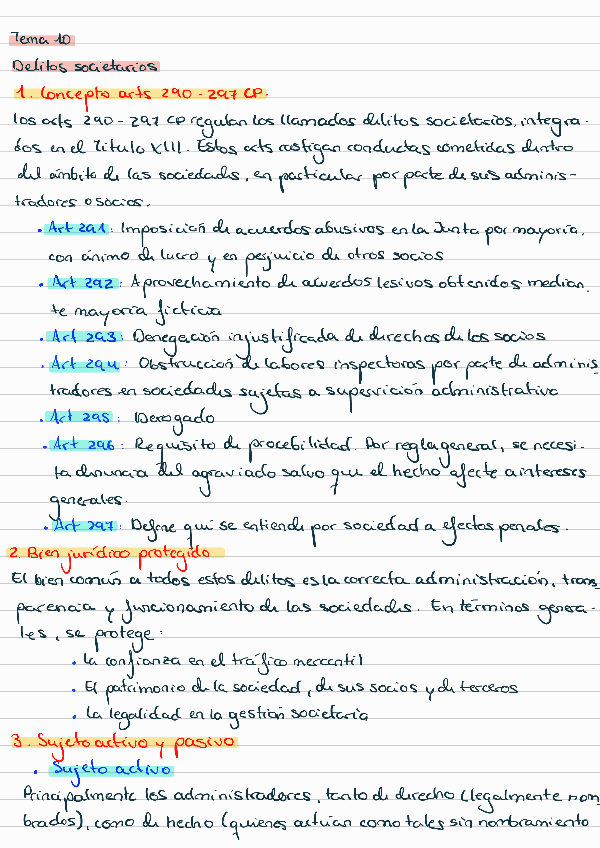 Tema 10
Delitos societarios
1. Concepto arts 290-297 CP.
los arts 290-297 CP regulan los llamados delitos societarios, integra-
dos en el Titulo XIII. Estos arts castigan conductas cometidas dentro
del ámbito de las sociedades, en particular por parte de sus adminis-
tradores o socios.
• Art 291: Imposición de acuerdos abusivos en la Junta por mayoría,
con ánimo de lucro y en perjuicio de otros socios
• Art 292: Aprovechamiento de acuerdos lesivos obtenidos median-
te mayoría ficticia
• Art 293: Denegación injustificada de derechos de los socios
• Art 294: Obstrucción de labores inspectoras por parte de adminis
tradores en sociedades sujetas a supervición administrativa
• Art 295: Derogado
• Art 296: Requisito de procebilidad. Por regla general, se necesi-
ta denuncia del agraviado salvo que el hecho afecte a intereses
generales.
• Art 297: Define qué se entiende por sociedad a efectos penales.
2. Bien jurídico protegido
El bien común a todos estos delitos es la correcta administración, trans
parencia y funcionamiento de las sociedades. En términos genera-
les, se protege:
• la confianza en el tráfico mercantil
• El patrimonio de la sociedad, de sus socios y de terceros
• La legalidad en la gestión societaria
3. Sujeto activo y pasivo
• Sujeto activo
Principalmente los administradores, tanto de derecho (legalmente nom
brados), como de hecho (quienes actúan como tales sin nombramiento